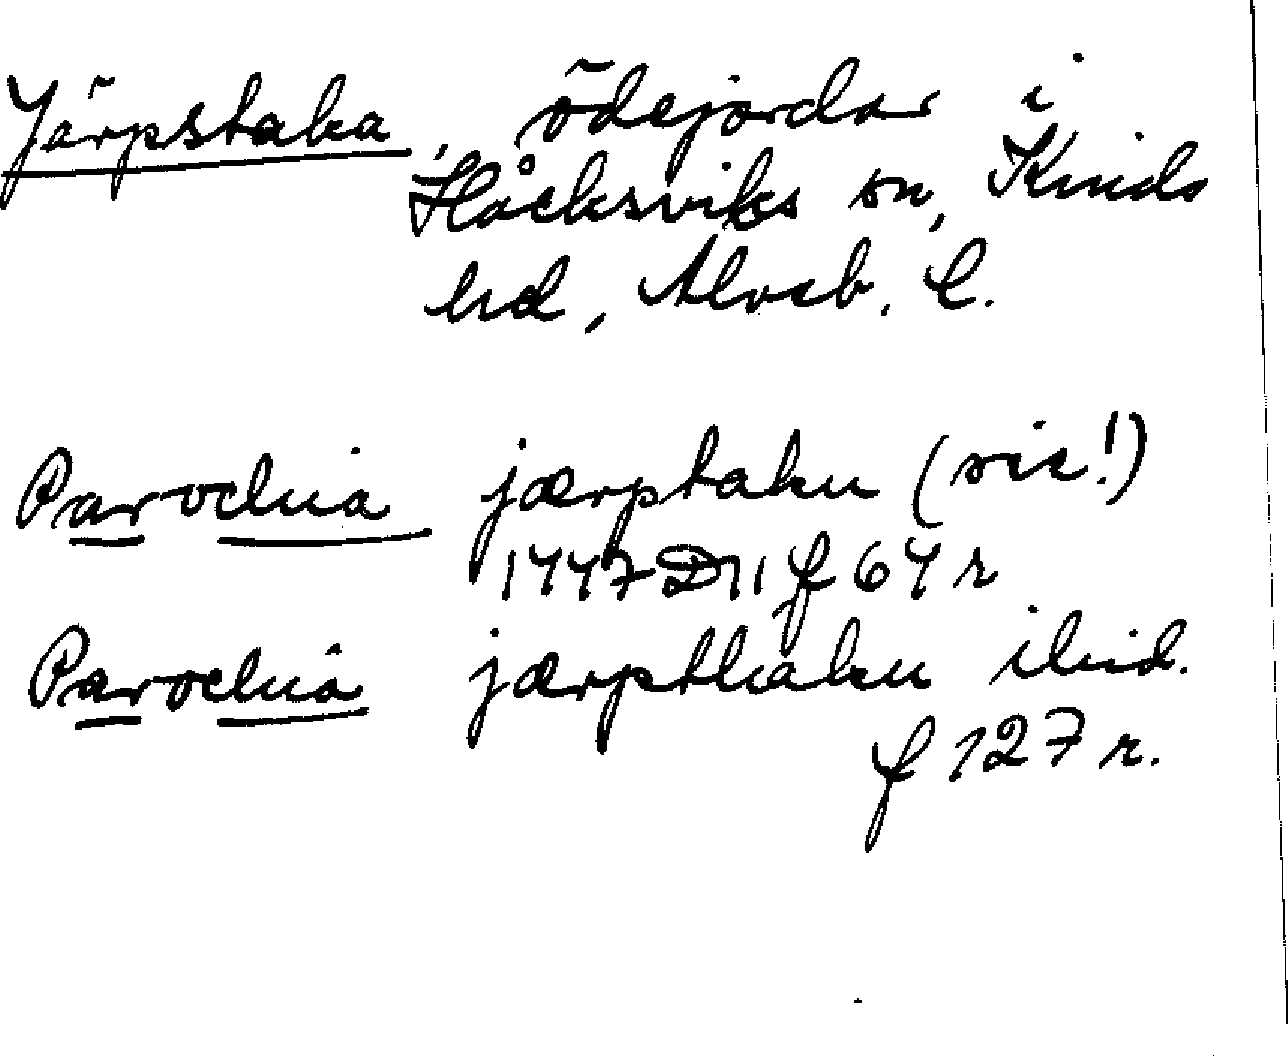 Järpstaka, ödejordar i
Håcksviks sn, Kinds
hd, Älvsb. l.
Parochia jærptaku (sic!)
1447 D11 f 64 r
Parochia jærpthaku ibid.
f 127 r.